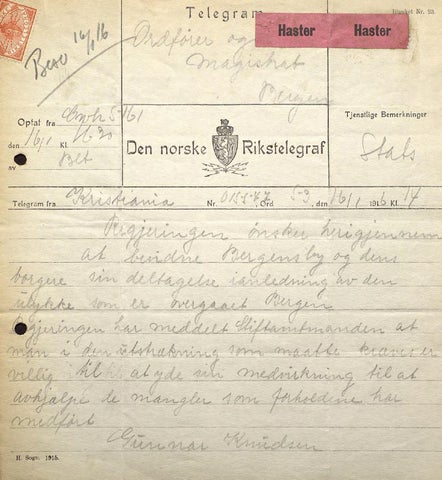 Telegram
Blanket Nr. 93.
Haster
Haster
16/1 16
Ordfører og
Magistrat
Bergen
Optat fra
16/1 Kl. 1630
av
Tjenstlige Bemerkninger
Stats
Den norske Rikstelegraf
Telegram fra Kristiania Nr. Ord 53, den 16/1 1916 Kl. 14
Regjeringen ønsker herigjennem
at bevidne Bergens by og dens
borgere sin deltagelse ianledning av den
ulykke som er overgaaet Bergen
Regjeringen har meddelt Stiftamtmanden at
man i den utstrækning som maatte kræves er
villig til at yde sin medvirkning til at
avhjælpe de mangler som forholdene har
medført
Gunnar Knudsen
H. Sogv. 1915.